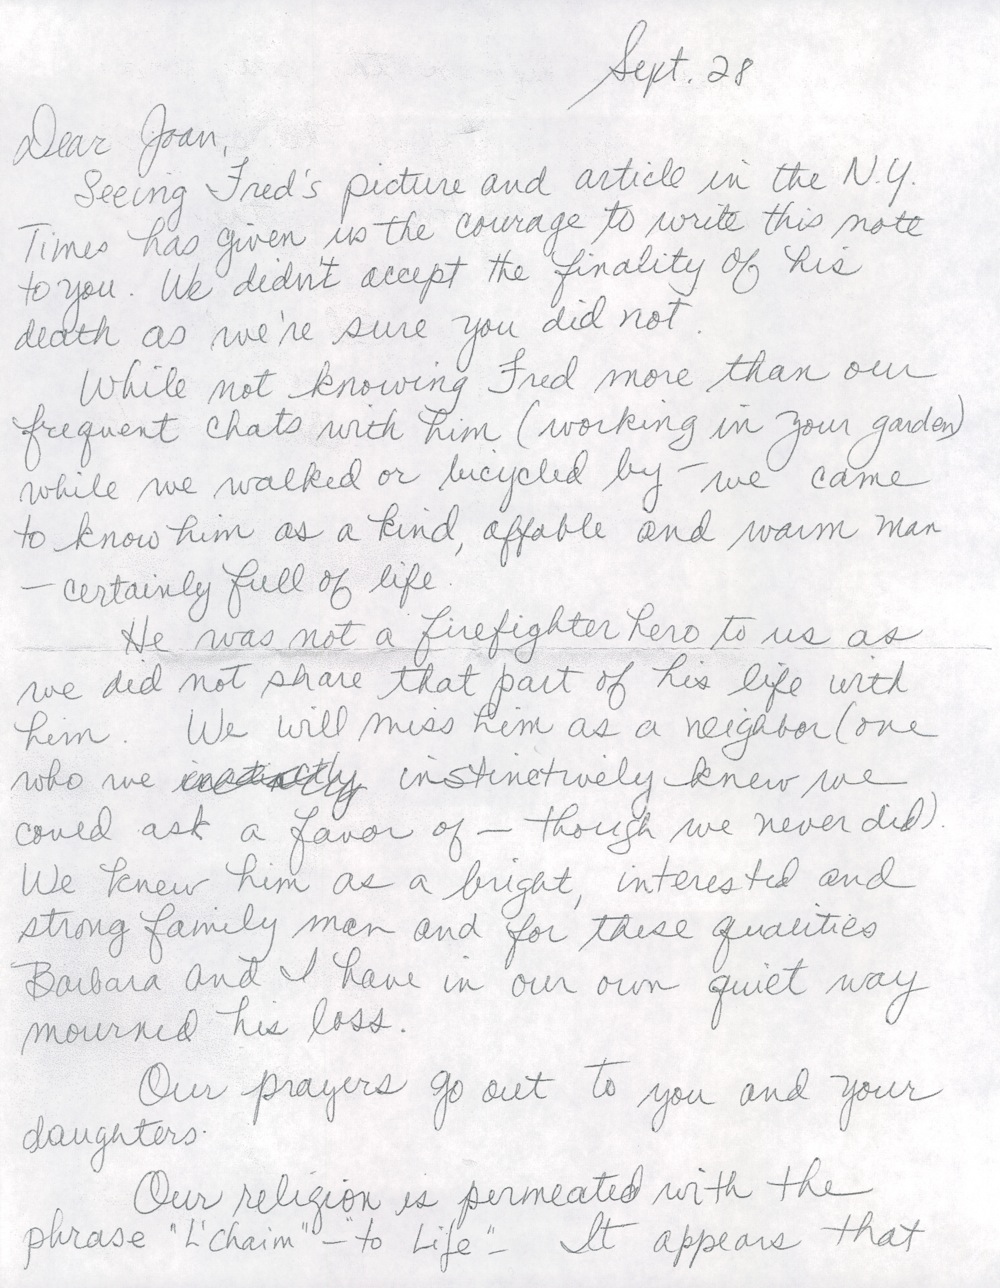 Sept. 28
Dear Joan,
Seeing Fred's picture and article in the N.Y.
Times has given us the courage to write this note
to you. We didn't accept the finality of his
death as we're sure you did not.
While not knowing Fred more than our
frequent chats with him (working in your garden)
while we walked or bicycled by - we came
to know him as a kind, affable and warm man
- certainly full of life.
He was not a firefighter hero to us as
we did not share that part of his life with
him. We will miss him as a neighbor (one
who we instinctively knew we
could ask a favor of - though we never did).
We knew him as a bright, interested and
strong family man and for these qualities
Barbara and I have in our own quiet way
mourned his loss.
Our prayers go out to you and your
daughters.
Our religion is permeated with the
phrase "L'chaim" - "to Life" - It appears that